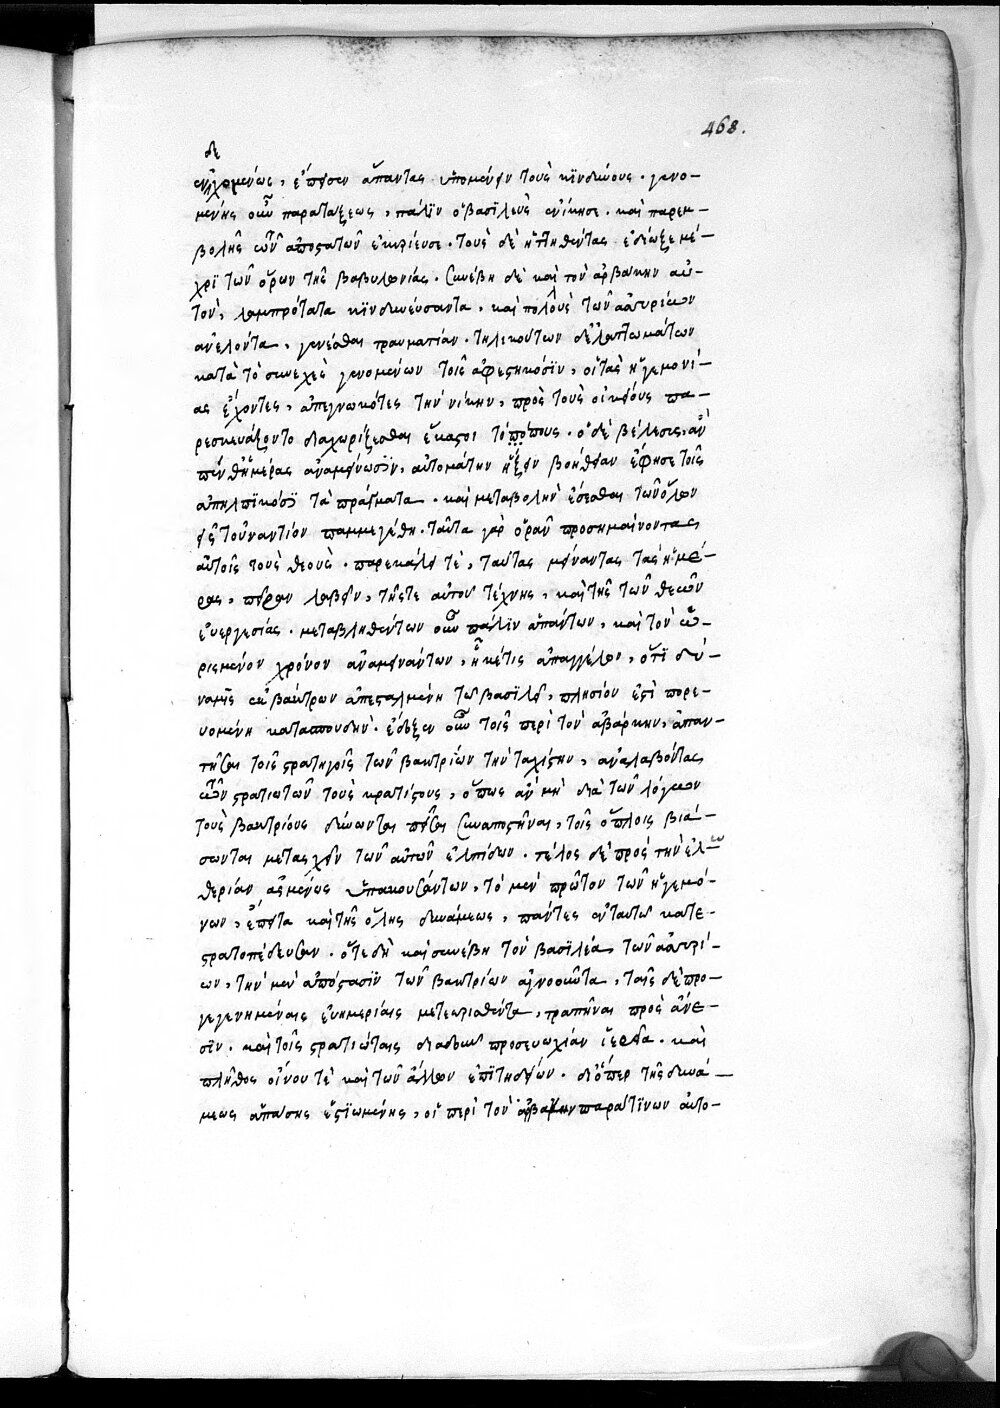 468.
δε
ενηχομένως, ἔπεισεν ἅπαντας ὑπομένειν τοὺς κϊνδύνους. γενο-
μένης οὖν παρατάξεως, πάλϊν ὁ βασϊλεὺς ἐνίκησε. καὶ παρεμ-
βολῆς τῶν ἀποστατῶν ἐκυρίευσε. τοὺς δὲ ἡττηθέντας ἐδίωξε μέ-
χρϊ τῶν ὅρων τῆς βαβυλωνίας. συνέβη δὲ καὶ τὸν ἀρβάκην αὐ-
τὸν, λαμπρότατα κϊνδυνεύσαντα, καὶ πολλοὺς τῶν ἀσσυρίων
ἀνελόντα, γενέσθαι τραυματίαν. τηλικούτων δ' ἐλαττωμάτων
κατὰ τὸ συνεχὲς γενομένων τοῖς ἀφεστηκόσϊν, οἱ τὰς ἡγεμονί-
ας ἔχοντες, ἀπεγνωκότες τὴν νίκην, πρὸς τοὺς οἰκείους πα-
ρεσκευάζοντο διαχωρίζεσθαι ἕκαστοι τόπους. ὁ δὲ βέλεσις, ἂν
πένθ' ἡμέρας ἀναμείνωσϊν, αὐτομάτην ἥξειν βοήθειαν ἔφησε τοῖς
ἀπηλπϊκόσϊ τὰ πράγματα. καὶ μεταβολὴν ἔσεσθαι τῶν ὅλων
εἰς τοὐναντίον παμμεγέθη. ταῦτα γὰρ ὁρᾶν προσημαίνοντας
αὐτοῖς τοὺς θεοὺς. παρεκάλει τὲ, ταύτας μείναντας τὰς ἡμέ-
ρας, πεῖραν λαβεῖν, τῆς τε αὐτοῦ τέχνης, καὶ τῆς τῶν θεῶν
εὐεργεσίας. μεταβληθέντων οὖν πάλϊν ἁπάντων, καὶ τὸν ὡ-
ρισμένον χρόνον ἀναμεινάντων, ἧκέ τις ἀπαγγέλων, ὅτϊ δύ-
ναμϊς ἐκ βάκτρων ἀπεσταλμένη τῷ βασϊλεῖ, πλησίον ἐστὶ πορε-
υομένη κατασπουδὴν. ἔδοξεν οὖν τοῖς περὶ τὸν ἀβάρκην, ἀπαν-
τῆσαι τοῖς στρατηγοῖς τῶν βακτρίων τὴν ταχίστην, ἀναλαβόντας
τῶν στρατιωτῶν τοὺς κρατίστους, ὅπως ἂν μὴ διὰ τῶν λόγων
τοὺς βακτρίους δύνωνται πεῖσαι συναποστῆναι, τοῖς ὅπλοις βιά-
σωνται μετασχεῖν τῶν αὐτῶν ἐλπίδων. τέλος δὲ πρὸς τὴν ἐλευ
θερίαν ἀσμένως ὑπακουσάντων, τὸ μὲν πρῶτον τῶν ἡγεμό-
νων, ἔπειτα καὶ τῆς ὅλης δυνάμεως, πάντες ἐν ταυτῷ κατε-
στρατοπέδευσαν. ὅτε δὴ καὶ συνέβη τὸν βασϊλέα, τῶν ἀσσυρί-
ων, τὴν μὲν ἀπόστασϊν τῶν βακτρίων ἀγνοοῦντα, ταῖς δὲ προ-
γεγενημέναις εὐημερίαις μετεωρισθέντα, τραπῆναι πρὸς ἄνε-
σϊν. καὶ τοῖς στρατιώταις διαδοῦν προσευωχίαν ἱερεῖα. καὶ
πλῆθος οἴνου τὲ καὶ τῶν ἄλλων ἐπϊτηδείων. διόπερ τῆς δυνά-
μεως ἁπάσης ἑστϊωμένης, οἱ περὶ τὸν ἀρβάκην παρά τϊνων αὐτο-